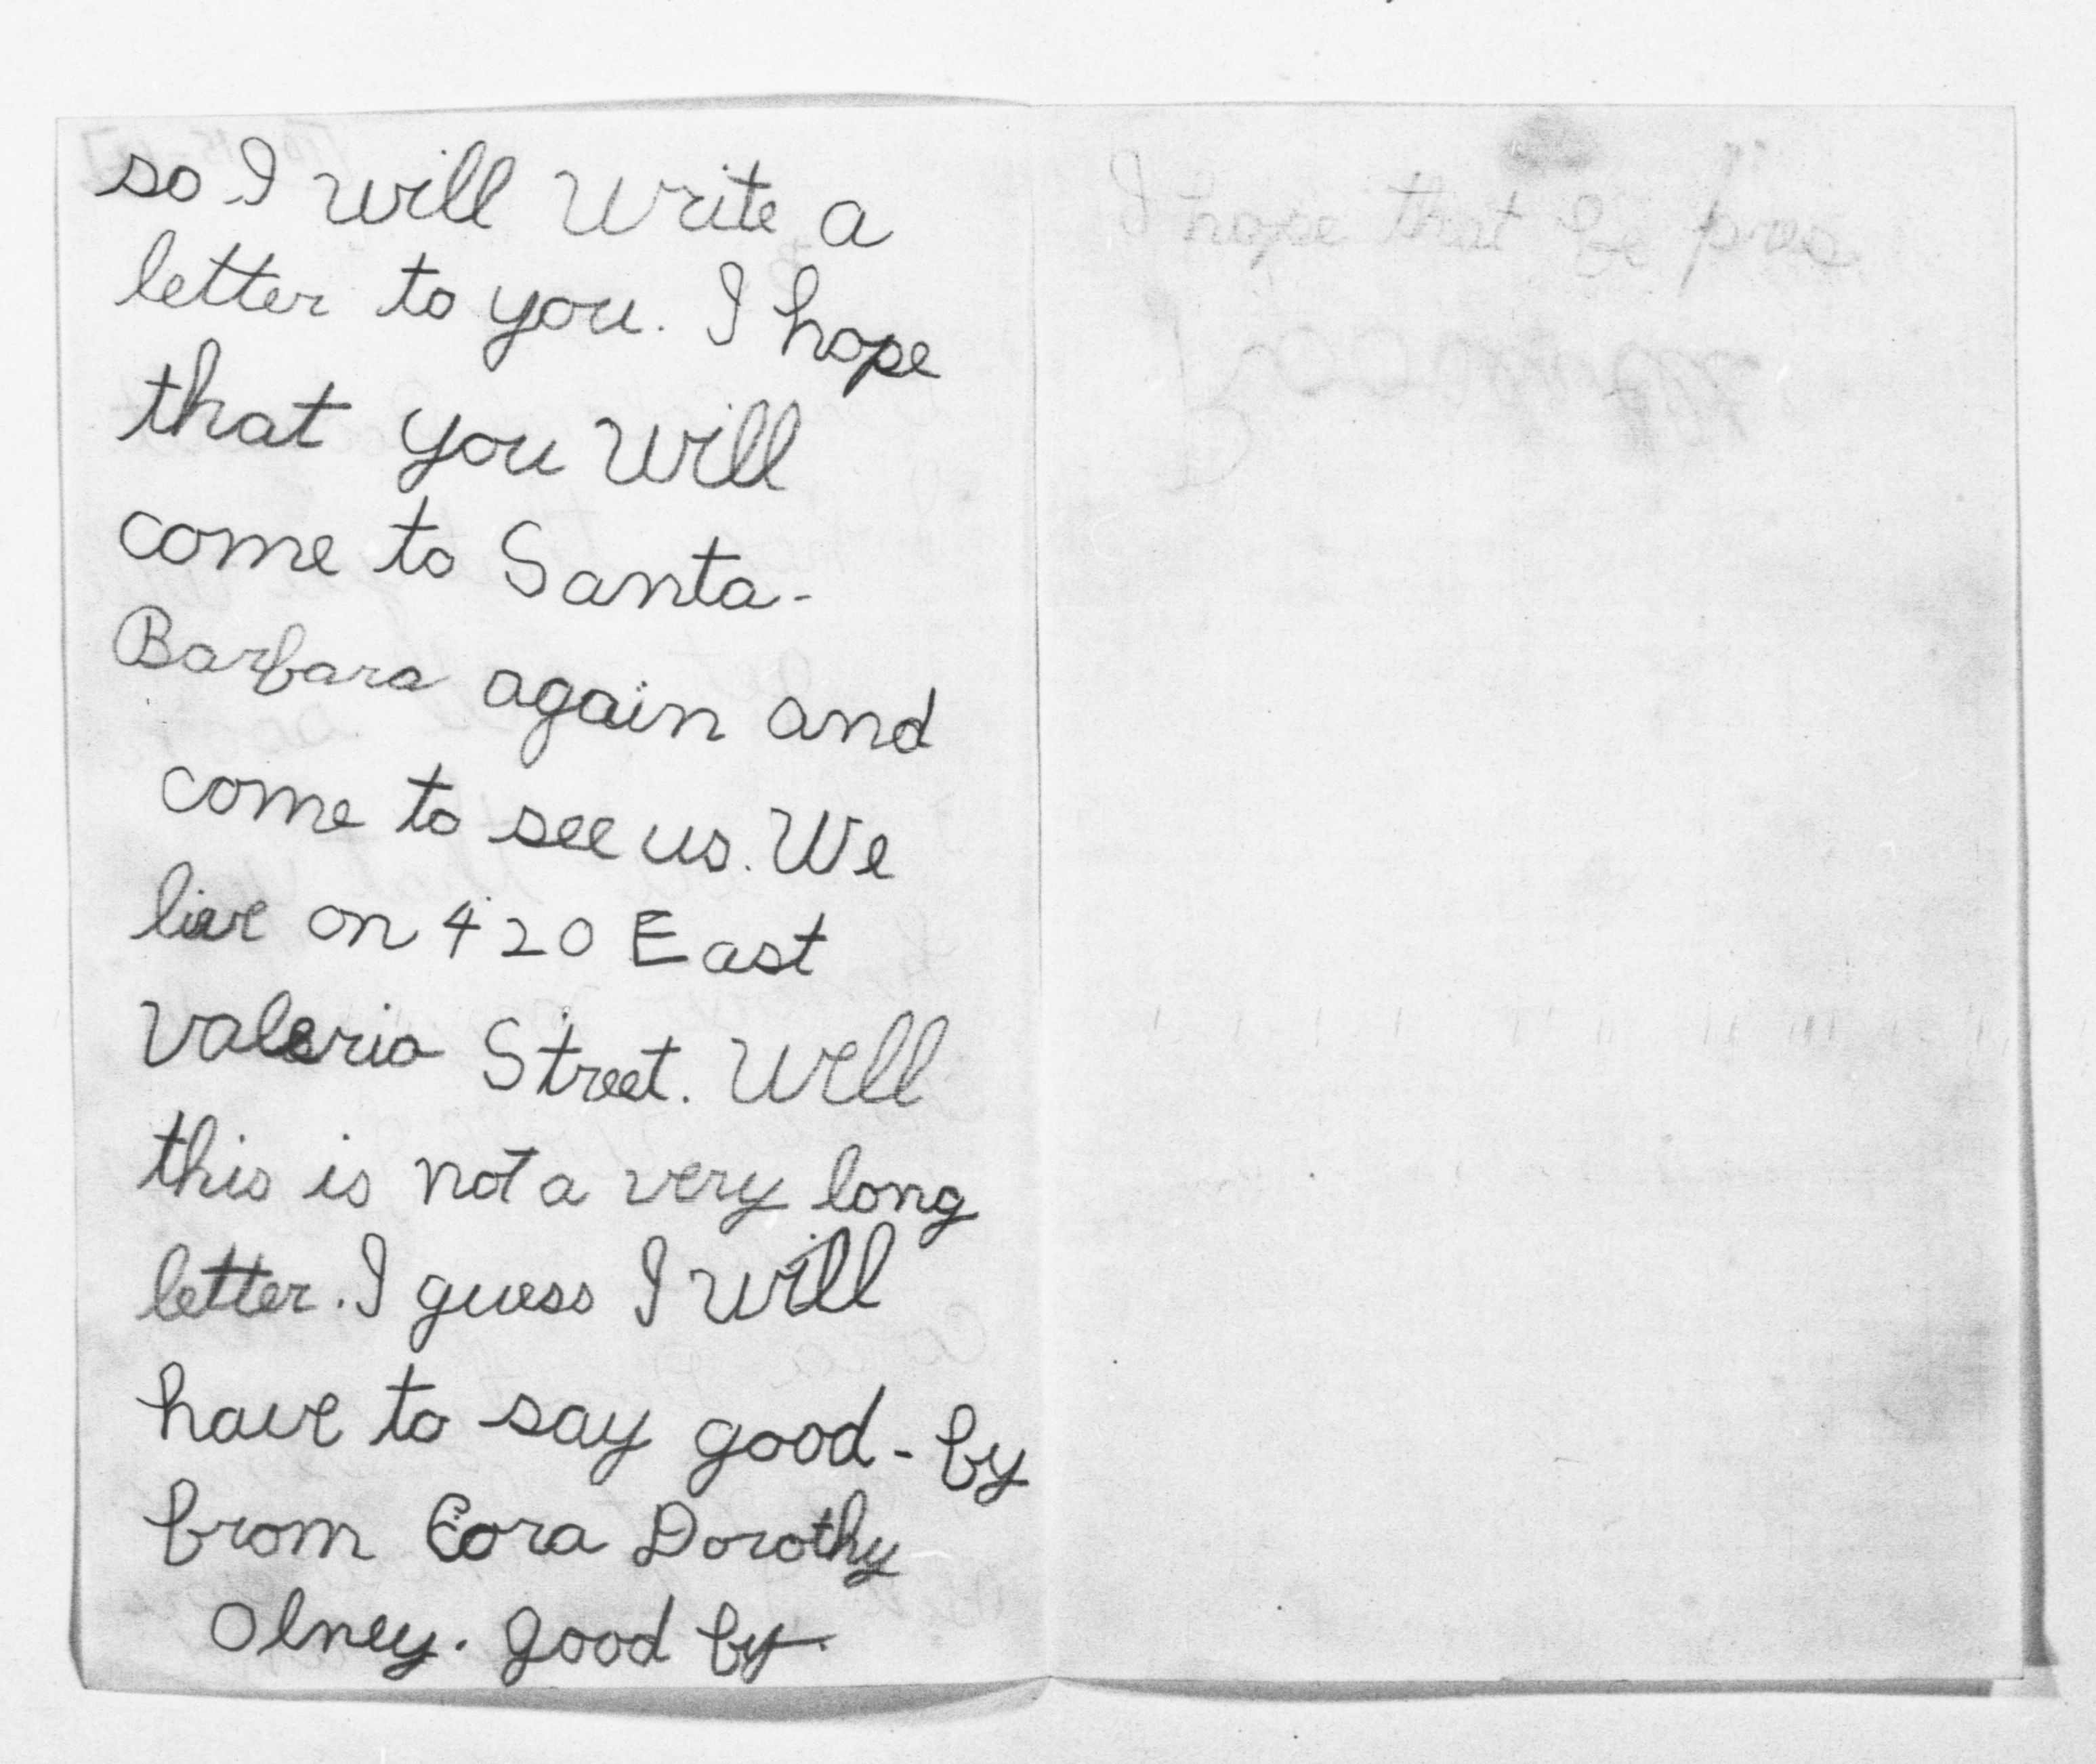 so I will write a
letter to you. I hope
that you will
come to Santa-
Barbara again and
come to see us. We
live on 420 East
Valerio Street. Well
this is not a very long
letter. I guess I will
have to say good-by
from Cora Dorothy
Olney. good by.
I hope that